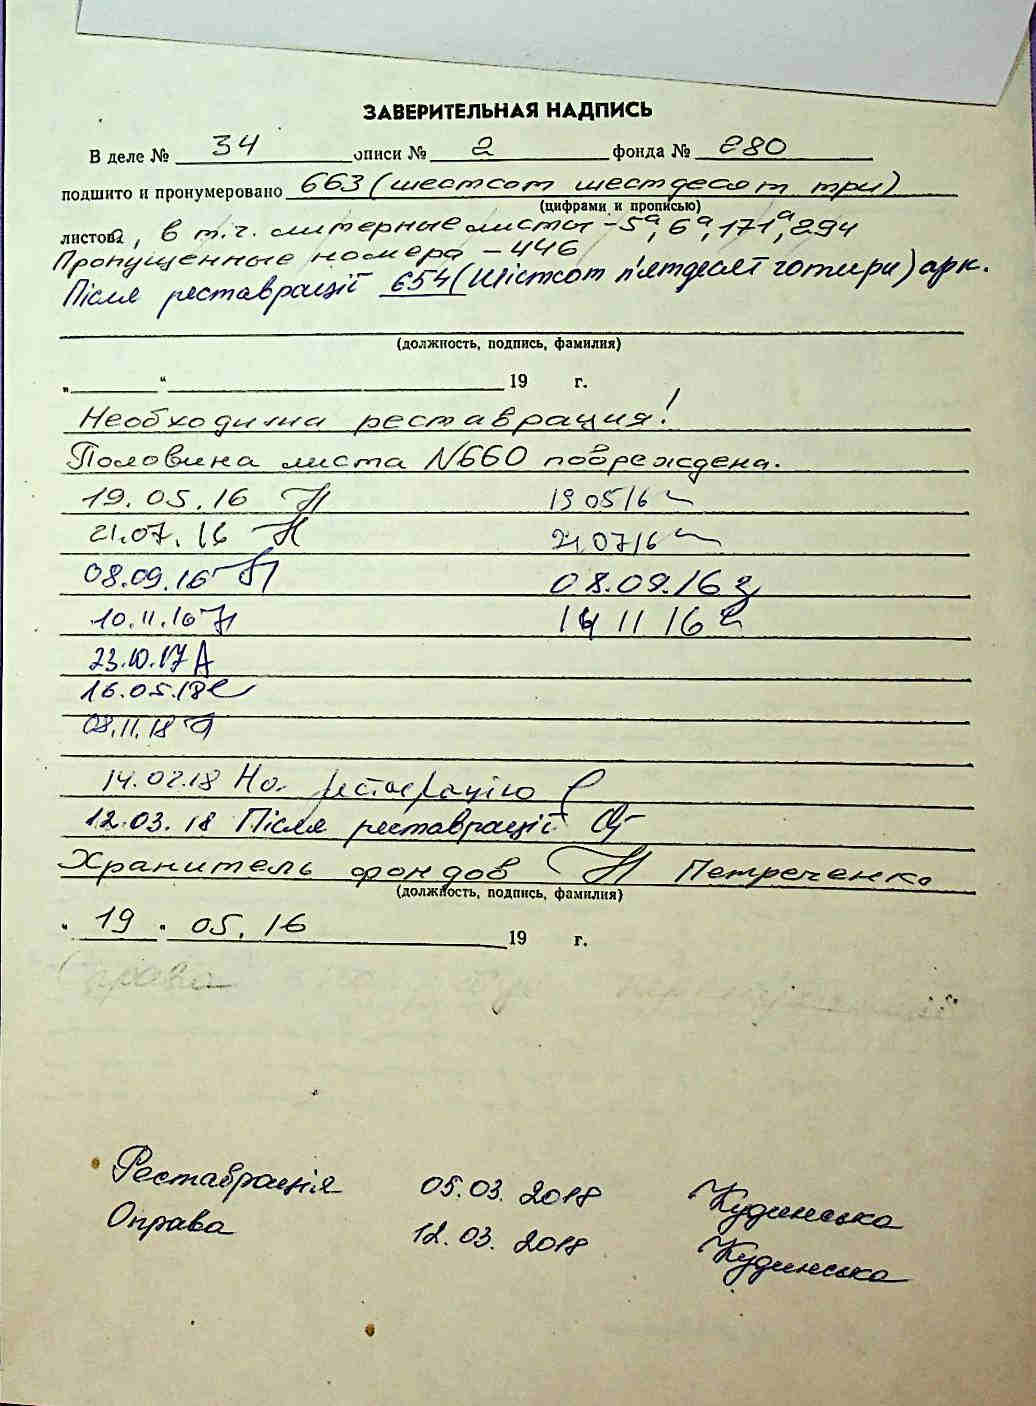 ЗАВЕРИТЕЛЬНАЯ НАДПИСЬ
В деле № 34 описи № 2 фонда № 280
подшито и пронумеровано 663 (шестсот шестдесят три)
(цифрами и прописью)
листов, в т.ч. литерные листы – 5а, 6а, 171а, 294
Пропущенные номера – 446
Після реставрації 654 (Шістсот п'ятдесят чотири) арк.
(должность, подпись, фамилия)
„ “ 19 г.
Необходима реставрация!
Половина листа №660 повреждена.
19.05.16 19 05/16
21.07.16 21 07/16
08.09.16 08.09.16
10.11.16 11 16
23.10.17
16.05.18
08.11.18
14.02.18 На реставрацію
12.03.18 Після реставрації
Хранитель фондов Петреченко
(должность, подпись, фамилия)
„ 19 “ 05.16 19 г.
Справа
Реставрація 05.03.2018 Кудинська
Оправа 12.03.2018 Кудинська